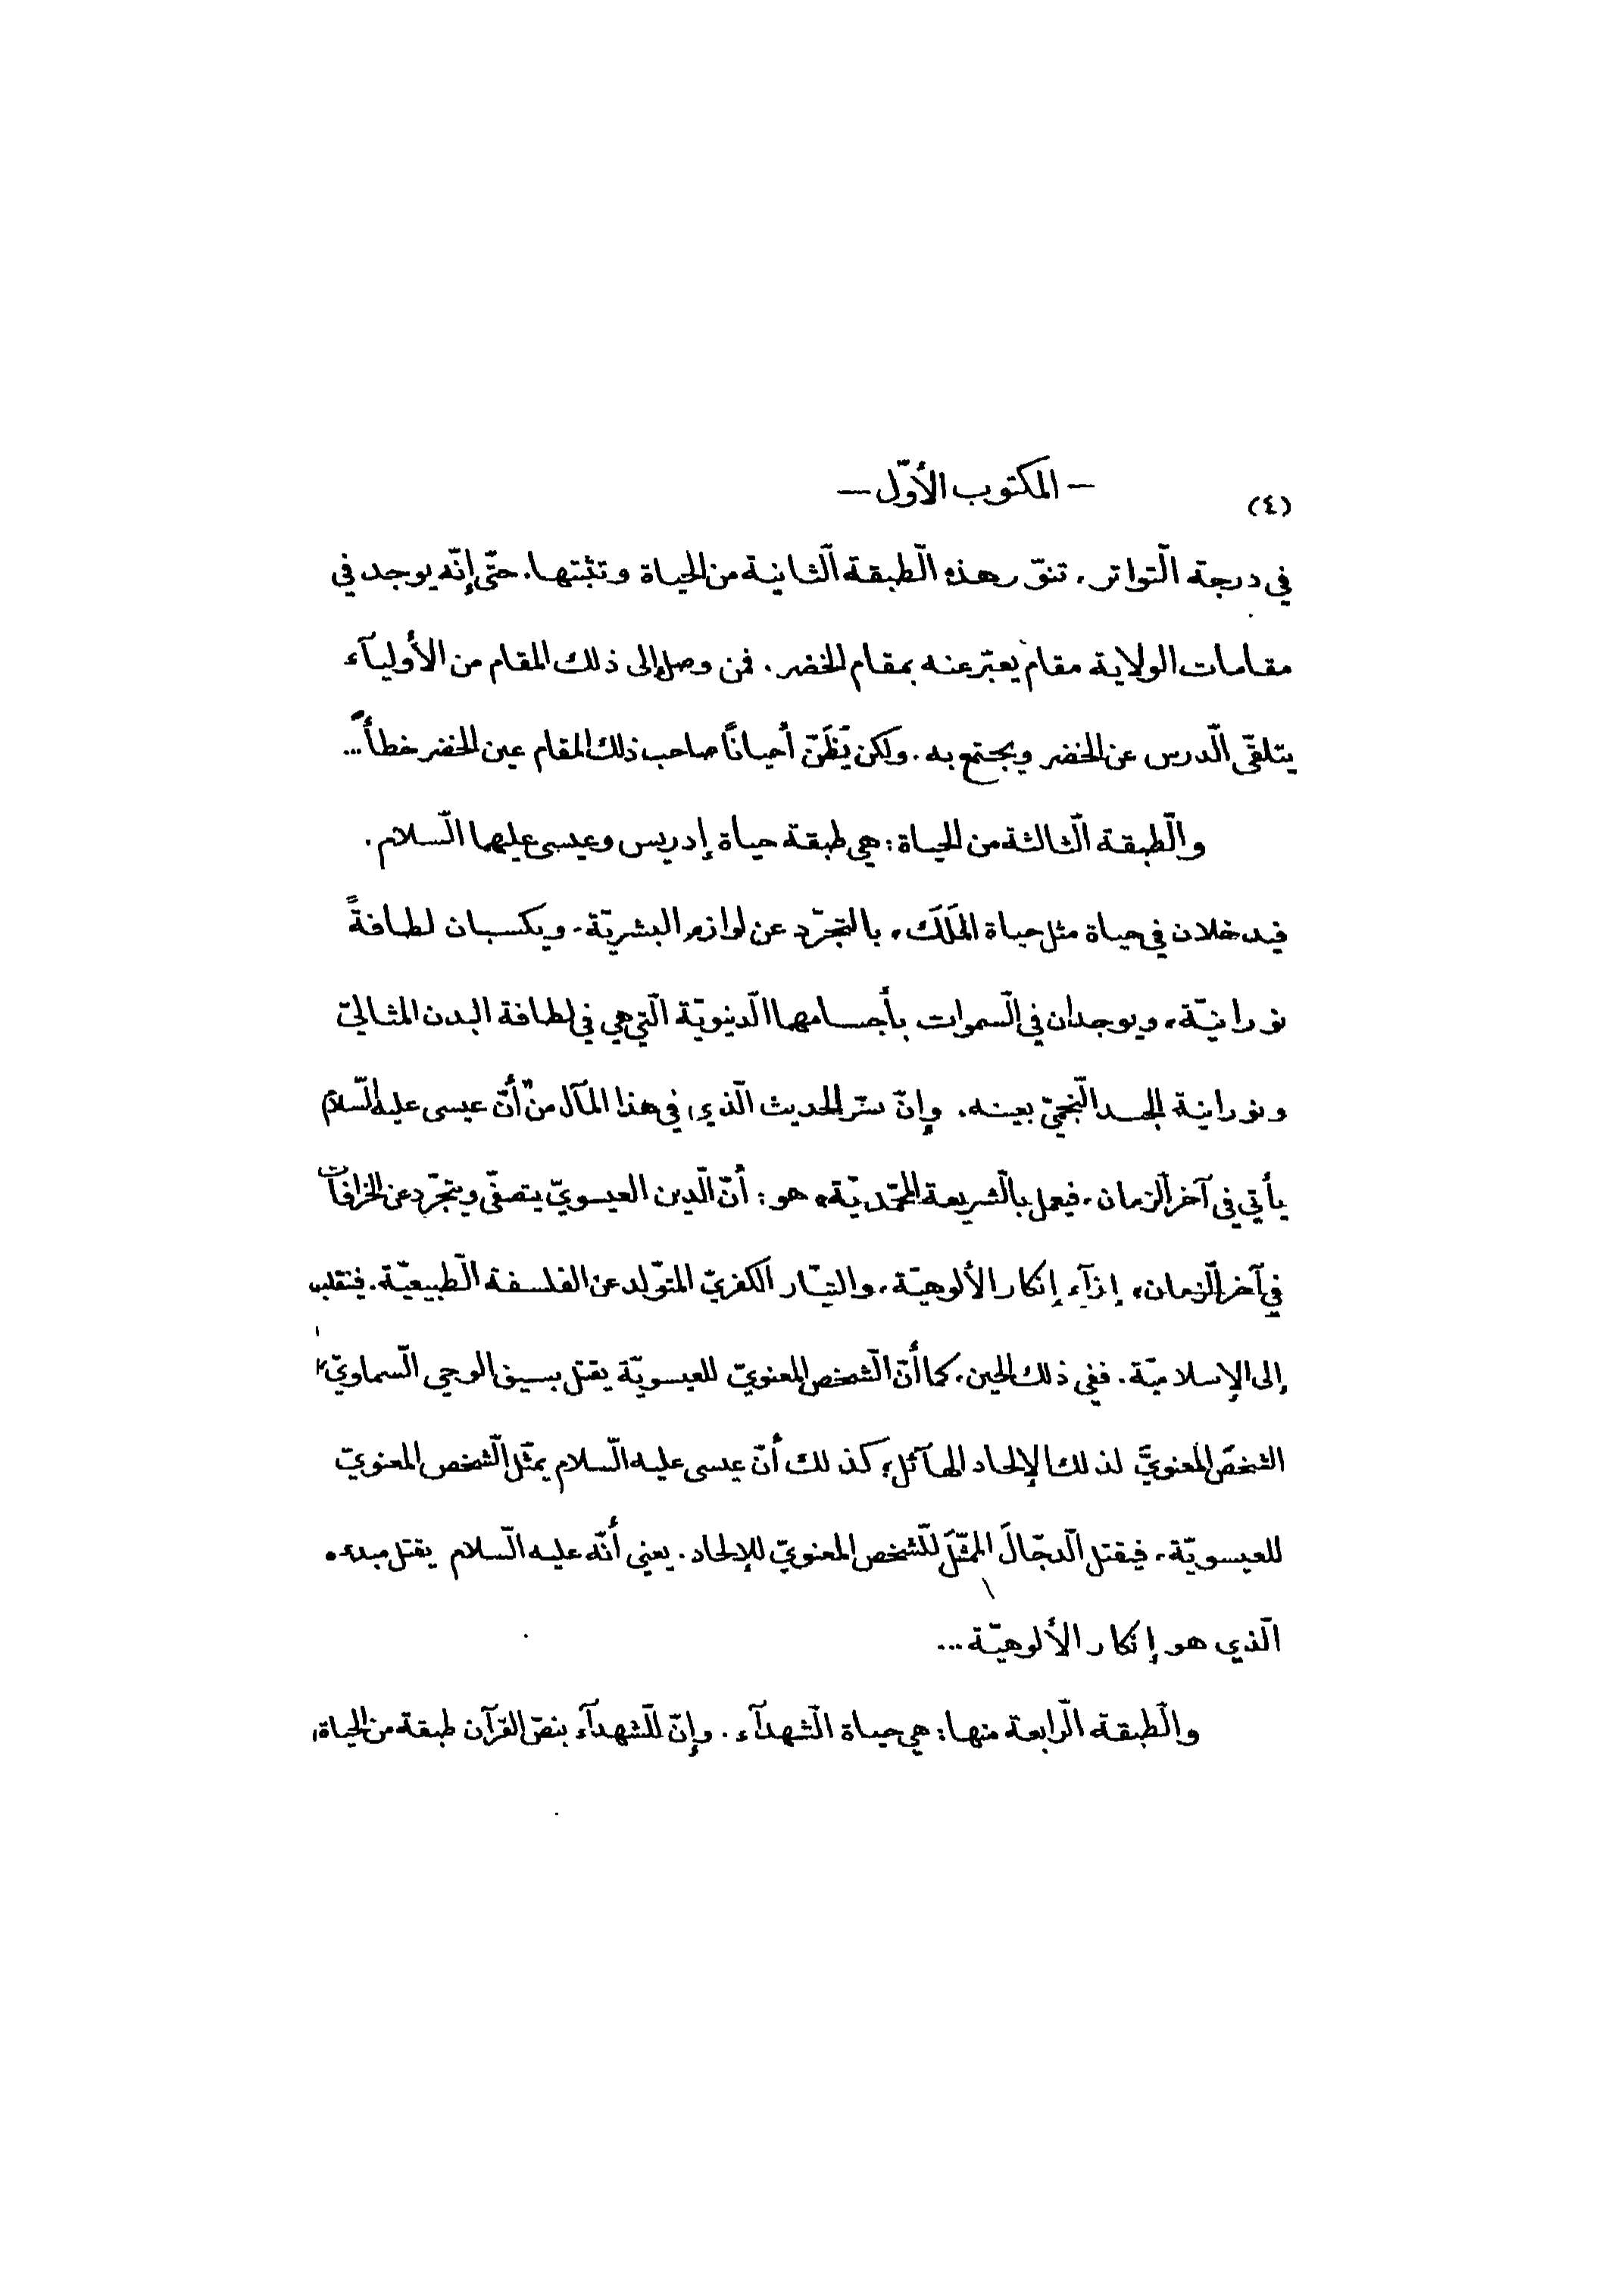 – المكتوب الأوّل –
(٤)
في درجة التّواتر، تنوّر هذه الطّبقة الثّانية من الحياة وتثبّتها. حتّى إنّه يوجد في
مقامات الولاية مقام يعبّر عنه بمقام الخضر. فمن وصل إلى ذلك المقام من الأوليآء
يتلقّى الدّرس عن الخضر ويجتمع به. ولكن يُظَنّ أحيانًا صاحب ذلك المقام عين الخضر خطأً...
والطّبقة الثّالثة من الحياة: هي طبقة حياة إدريس وعيسى عليهما السّلام.
فيدخلان في حياة مثل حياة المَلَك، بالتجرّد عن لوازم البشريّة. ويكسبان لطافةً
نورانيّة، ويوجدان في السّموات بأجسامهما الدّنيويّة الّتي هي في لطافة البدن المثاليّ
ونورانية الجسد النّجميّ بعينه. وإنّ سرّ الحديث الّذي في هذا المآل من أنّ عيسى عليه السّلام
يأتي في آخر الزمان، فيعمل بالشّريعة المحمّديّة، هو: أنّ الدّين العيسويّ يتصفّى ويتجرّد عن الخرافات
في آخر الزّمان، إزآء إنكار الألوهيّة، والتيّار الكفريّ المتولّد عن الفلسفة الطّبيعيّة. فينقلب
إلى الإسلاميّة. ففي ذلك الحين، كما أنّ الشّخص المعنويّ للعيسويّة يقتل بسيف الوحي السّماويّ
الشخصَ المعنويَّ لذلك الإلحاد الهآئل؛ كذلك أنّ عيسى عليه السّلام يمثّل الشّخص المعنويّ
للعيسويّة، فيقتل الدّجّالَ الممثّلَ للشّخص المعنويّ للإلحاد. يعني أنّه عليه السّلام يقتل مبدءه
الّذي هو إنكار الألوهيّة...
والطّبقة الرّابعة منها: هي حياة الشّهدآء. وإنّ للشّهدآء بنصّ القرآن طبقة من الحياة،